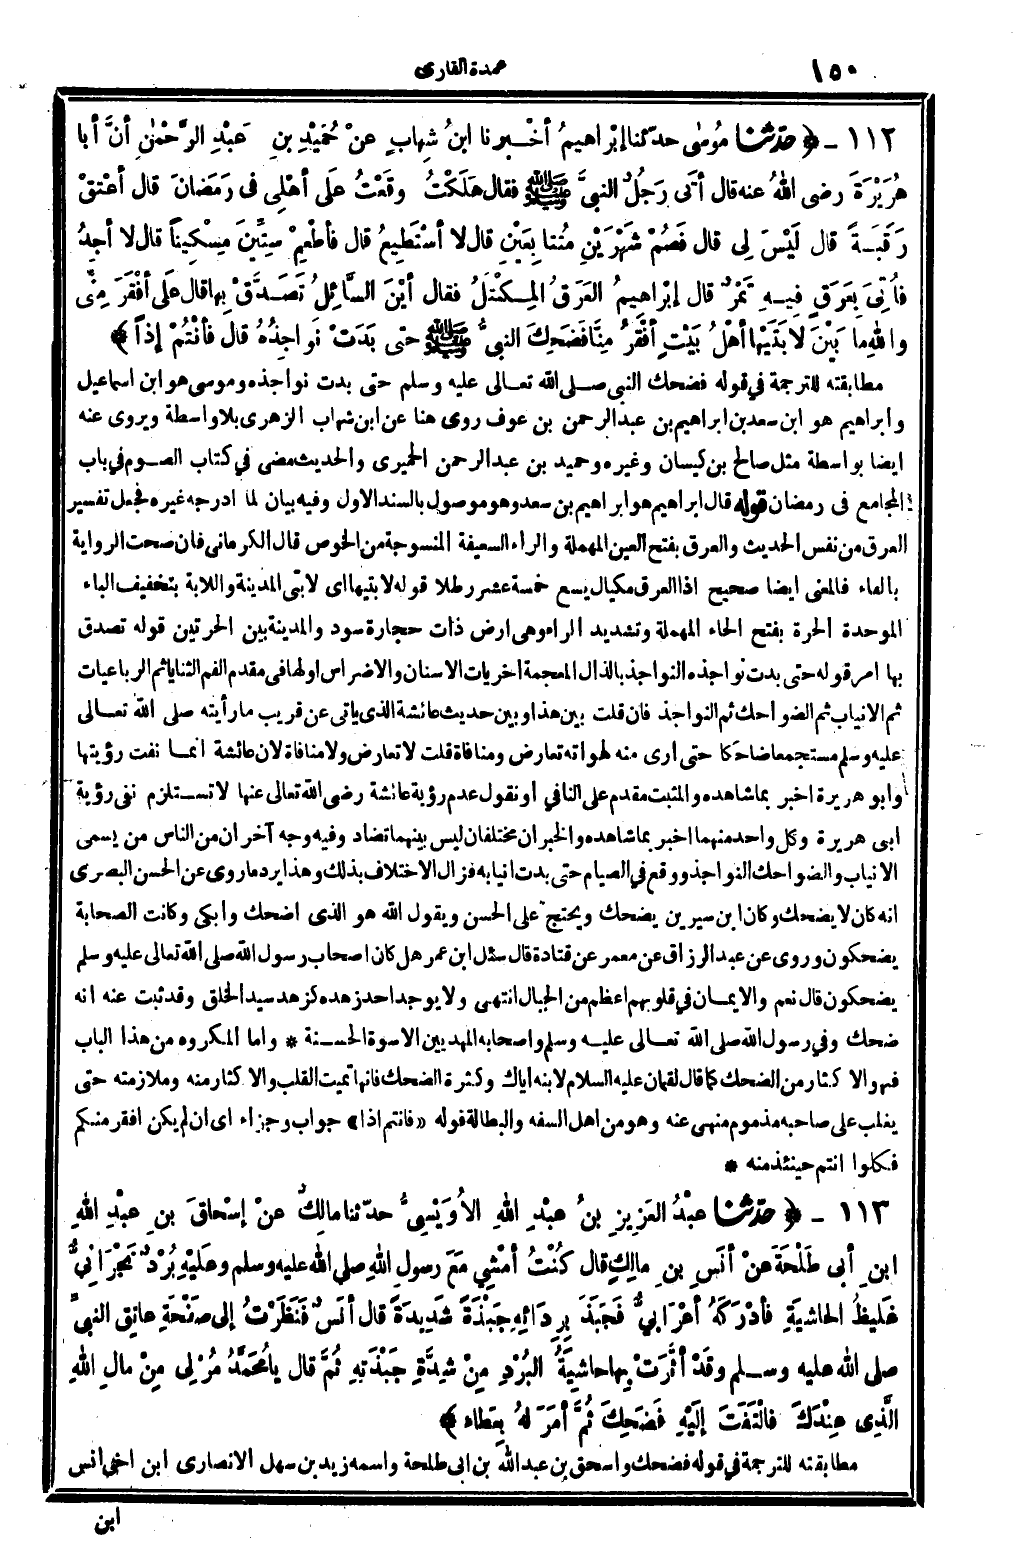 ١٥٠ عمدة القاري
١١٢ - ﴿ حَدَّثَنَا مُوسٰى حدّثنا إبْراهيمُ أخْـبرنا ابنُ شِهابٍ عنْ حُمَيْدِ بنِ عَبْدِ الرَّحْمٰنِ أنَّ أبا
هُرَيْرَةَ رضى اللهُ عنه قال أتَى رَجُلٌ النبيَّ ﷺ فقال هَلَكْتُ وقَعْتُ عَلَى أهْلِى فى رَمَضانَ قال أعْتِقْ
رَقَبَـةً قال لَيْسَ لِى قال فَصُمْ شَهْرَيْنِ مُتَتابِعَيْنِ قال لا أسْتَطِيعُ قال فأطْعِمْ سِتِّينَ مِسْكِيناً قال لا أجِدُ
فأُتِيَ بِعَرَقٍ فيـهِ تَمْرٌ قال إبْراهيمُ العَرَقُ المِـكْتَلُ فقال أيْنَ السَّائِلُ تَصَـدَّقْ بِها قال عَلَى أفْقَرَ مِنِّى
واللهِ ما بَيْنَ لا بَتَيْها أهْلُ بَيْتٍ أفْقَرُ مِنَّا فَضَحِكَ النبيُّ ﷺ حتى بَدَتْ نَواجِذُهُ قال فأنْتُمْ إذاً ﴾
مطابقته للترجمة في قوله فضحك النبي صـلى الله تعـالى عليه وسلم حتى بدت نواجذه وموسى هو ابن اسماعيل
وابراهيم هو ابن سعد بن ابراهيم بن عبد الرحمن بن عوف روى هنا عن ابن شهاب الزهرى بلا واسطة ويروى عنه
ايضا بواسطة مثل صالح بن كيسان وغيره وحميد بن عبد الرحمن الحميرى والحديث مضى في كتاب الصـوم في باب
المجامع فى رمضان قوله قال ابراهيم هو ابراهيم بن سعد وهو موصول بالسند الاول وفيه بيان لما ادرجه غيره فجعل تفسير
العرق من نفس الحديث والعرق بفتح العين المهملة والراء السعيفة المنسوجة من الخوص قال الكرماني فان صحت الرواية
بالفاء فالمعنى ايضا صحيح اذ الفرق مكيال يسع خمسة عشر رطلا قوله لابتيها اى لابتى المدينة واللابة بتخفيف الباء
الموحدة الحرة بفتح الحاء المهملة وتشديد الراء وهى ارض ذات حجارة سود والمدينة بين الحرتين قوله تصدق
بها امر قوله حتى بدت نواجذه النواجذ بالذال المعجمة اخريات الاسنان والاضراس اولها فى مقدم الفم الثنايا ثم الرباعيات
ثم الانياب ثم الضواحك ثم النواجذ فان قلت بين هذا وبين حديث عائشة الذى ياتى عن قريب ما رأيته صلى الله تعـالى
عليه وسلم مستجمعا ضاحكا حتى ارى منه لهواته تعارض ومنافاة قلت لا تعارض ولا منافاة لان عائشة انمـا نفت رؤيتها
وابو هريرة اخبر بما شاهده والمثبت مقدم على النافي او نقول عدم رؤية عائشة رضى الله تعالى عنها لا تسـتلزم نفى رؤية
ابى هريرة وكل واحد منهما اخبر بما شاهده والخبران مختلفان ليس بينهما تضاد وفيه وجه آخر ان من الناس من يسمى
الانياب والضواحك النواجذ ووقع في الصيام حتى بدت انيابه فزال الاختلاف بذلك وهذا يرد ما روى عن الحسن البصرى
انه كان لا يضحك وكان ابن سيرين يضحك ويحتج على الحسن ويقول الله هو الذى اضحك وابكى وكانت الصحابة
يضحكون وروى عن عبد الرزاق عن معمر عن قتادة قال سئل ابن عمر هل كان اصحاب رسول الله صلى الله تعالى عليه وسلم
يضحكون قال نعم والايمـان في قلوبهم اعظم من الجبال انتهى ولا يوجد احد زهده كزهد سيد الخلق وقد ثبت عنه انه
ضحك وفي رسول الله صلى الله تعـالى عليـه وسلم واصحابه المهديين الاسوة الحسـنة * واما المكروه من هذا الباب
فهو الا كثار من الضحك كما قال لقمان عليه السلام لابنه اياك وكثرة الضحك فانها تميت القلب والا كثار منه وملازمته حتى
يغلب على صاحبه مذموم منهى عنه وهو من اهل السفه والبطالة قوله «فانتم اذا» جواب وجزاء اى ان لم يكن افقر منكم
فـكلوا انتم حينئذ منه *
١١٣ - ﴿ حَدَّثَنَا عبْدُ العَزِيزِ بنُ عبْدِ اللهِ الأُوَيْسِىُّ حدّثنا مالِكٌ عنْ إسْحاقَ بنِ عبْدِ اللهِ
ابنِ أبى طَلْحَةَ عنْ أنَسِ بنِ مالِكٍ قال كُنْتُ أمْشِي مَعَ رسولِ اللهِ صلى الله عليه وسلم وعَلَيْهِ بُرْدٌ نَجْرَانِيٌّ
غَلِيظُ الحاشِيَةِ فأدْرَكَهُ أعْرَابيٌّ فَجَبَذَ بِرِدَائِهِ جَبْذَةً شَدِيدَةً قال أنَسٌ فَنَظَرْتُ إلى صَفْحَةِ عاتِقِ النبيِّ
صلى الله عليه وسـلم وقَدْ أثَّرَتْ بِها حاشِيَةُ البُرْدِ مِنْ شِدَّةِ جَبْذَتِهِ ثُمَّ قال يا مُحَمَّدُ مُرْ لِى مِنْ مالِ اللهِ
الَّذِى عِنْدَكَ فالْتَفَتَ إلَيْهِ فَضَحِكَ ثُمَّ أمَرَ لهُ بِعَطاء ﴾
مطابقته للترجمة في قوله فضحك واسحق بن عبد الله بن ابى طلحة واسمه زيد بن سهل الانصارى ابن اخى انس
ابن